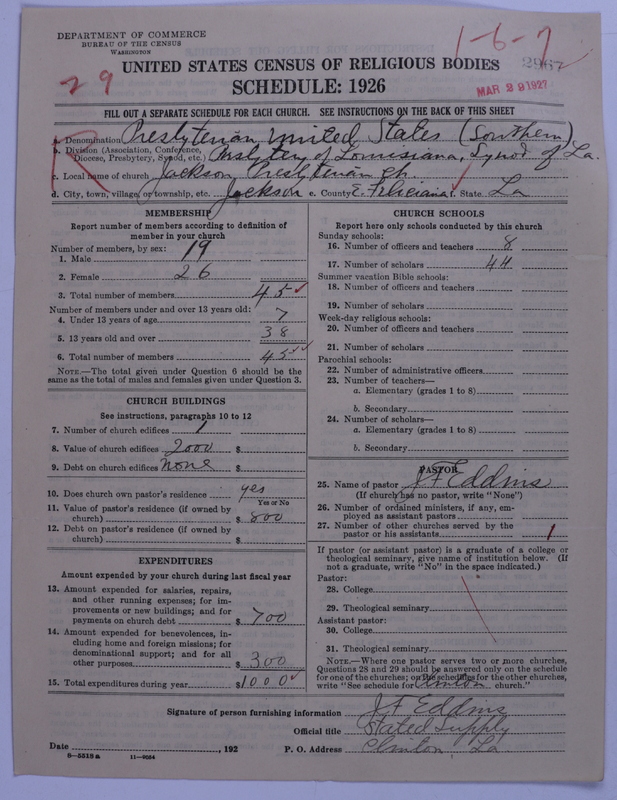 DEPARTMENT OF COMMERCE
BUREAU OF THE CENSUS
WASHINGTON
1-6-7
2967
UNITED STATES CENSUS OF RELIGIOUS BODIES
29
SCHEDULE: 1926
MAR 29 1927
FILL OUT A SEPARATE SCHEDULE FOR EACH CHURCH. SEE INSTRUCTIONS ON THE BACK OF THIS SHEET
R
a. Denomination Presbyterian United States (Southern)
b. Division (Association, Conference, Diocese, Presbytery, Synod, etc.) Presbytery of Louisiana, Synod of La.
c. Local name of church Jackson Presbyterian Ch.
d. City, town, village, or township, etc. Jackson e. County E. Feliciana f. State La
MEMBERSHIP
Report number of members according to definition of
member in your church
Number of members, by sex:
1. Male 19
2. Female 26
3. Total number of members 45
Number of members under and over 13 years old:
4. Under 13 years of age 7
5. 13 years old and over 38
6. Total number of members 45
NOTE.—The total given under Question 6 should be the
same as the total of males and females given under Question 3.
CHURCH BUILDINGS
See instructions, paragraphs 10 to 12
7. Number of church edifices 1
8. Value of church edifices 2000 $
9. Debt on church edifices None $
10. Does church own pastor's residence yes
Yes or No
11. Value of pastor's residence (if owned by
church) $ 800
12. Debt on pastor's residence (if owned by
church) $
EXPENDITURES
Amount expended by your church during last fiscal year
13. Amount expended for salaries, repairs,
and other running expenses; for im-
provements or new buildings; and for
payments on church debt $ 700
14. Amount expended for benevolences, in-
cluding home and foreign missions; for
denominational support; and for all
other purposes $ 300
15. Total expenditures during year $1000
CHURCH SCHOOLS
Report here only schools conducted by this church
Sunday schools:
16. Number of officers and teachers 8
17. Number of scholars 44
Summer vacation Bible schools:
18. Number of officers and teachers
19. Number of scholars
Week-day religious schools:
20. Number of officers and teachers
21. Number of scholars
Parochial schools:
22. Number of administrative officers
23. Number of teachers—
a. Elementary (grades 1 to 8)
b. Secondary
24. Number of scholars—
a. Elementary (grades 1 to 8)
b. Secondary
PASTOR
25. Name of pastor J F Eddins
(If church has no pastor, write "None")
26. Number of ordained ministers, if any, em-
ployed as assistant pastors
27. Number of other churches served by the
pastor or his assistants 1
If pastor (or assistant pastor) is a graduate of a college or
theological seminary, give name of institution below. (If
not a graduate, write "No" in the space indicated.)
Pastor:
28. College
29. Theological seminary
Assistant pastor:
30. College
31. Theological seminary
NOTE.—Where one pastor serves two or more churches,
Questions 28 and 29 should be answered only on the schedule
for one of the churches; on the schedules for the other churches,
write "See schedule for Clinton church."
Signature of person furnishing information J F Eddins
Official title Stated Supply
Date , 192 P. O. Address Clinton La
8—5518a 11—9054